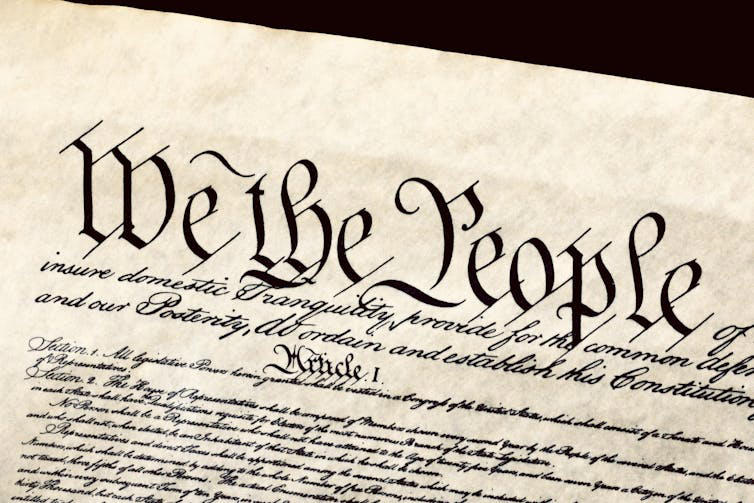 We the People of
insure domestic Tranquility, provide for the common defen
and our Posterity, do ordain and establish this Constitution
Article I
Section. 1. All legislative Powers herein granted shall be vested in a Congress of the United States, which shall consist of a Senate and
of Representatives.
Section. 2. The House of Representatives shall be composed of Members chosen every second Year by the People of the several States, and the
in each State shall have the Qualifications requisite for Electors of the most numerous Branch of the State Legislature.
No Person shall be a Representative who shall not have attained to the Age of twenty five Years, and been seven Years a Citizen of
and who shall not, when elected, be an Inhabitant of that State in which he shall be chosen.
Representatives and direct Taxes shall be apportioned among the several States which may be included
Numbers, which shall be determined by adding to the whole Number of free Persons, including
not taxed, three fifths of all other Persons. The actual Enumeration shall be
and within every subsequent Term of ten Years, in
thirty Thousand, but each State